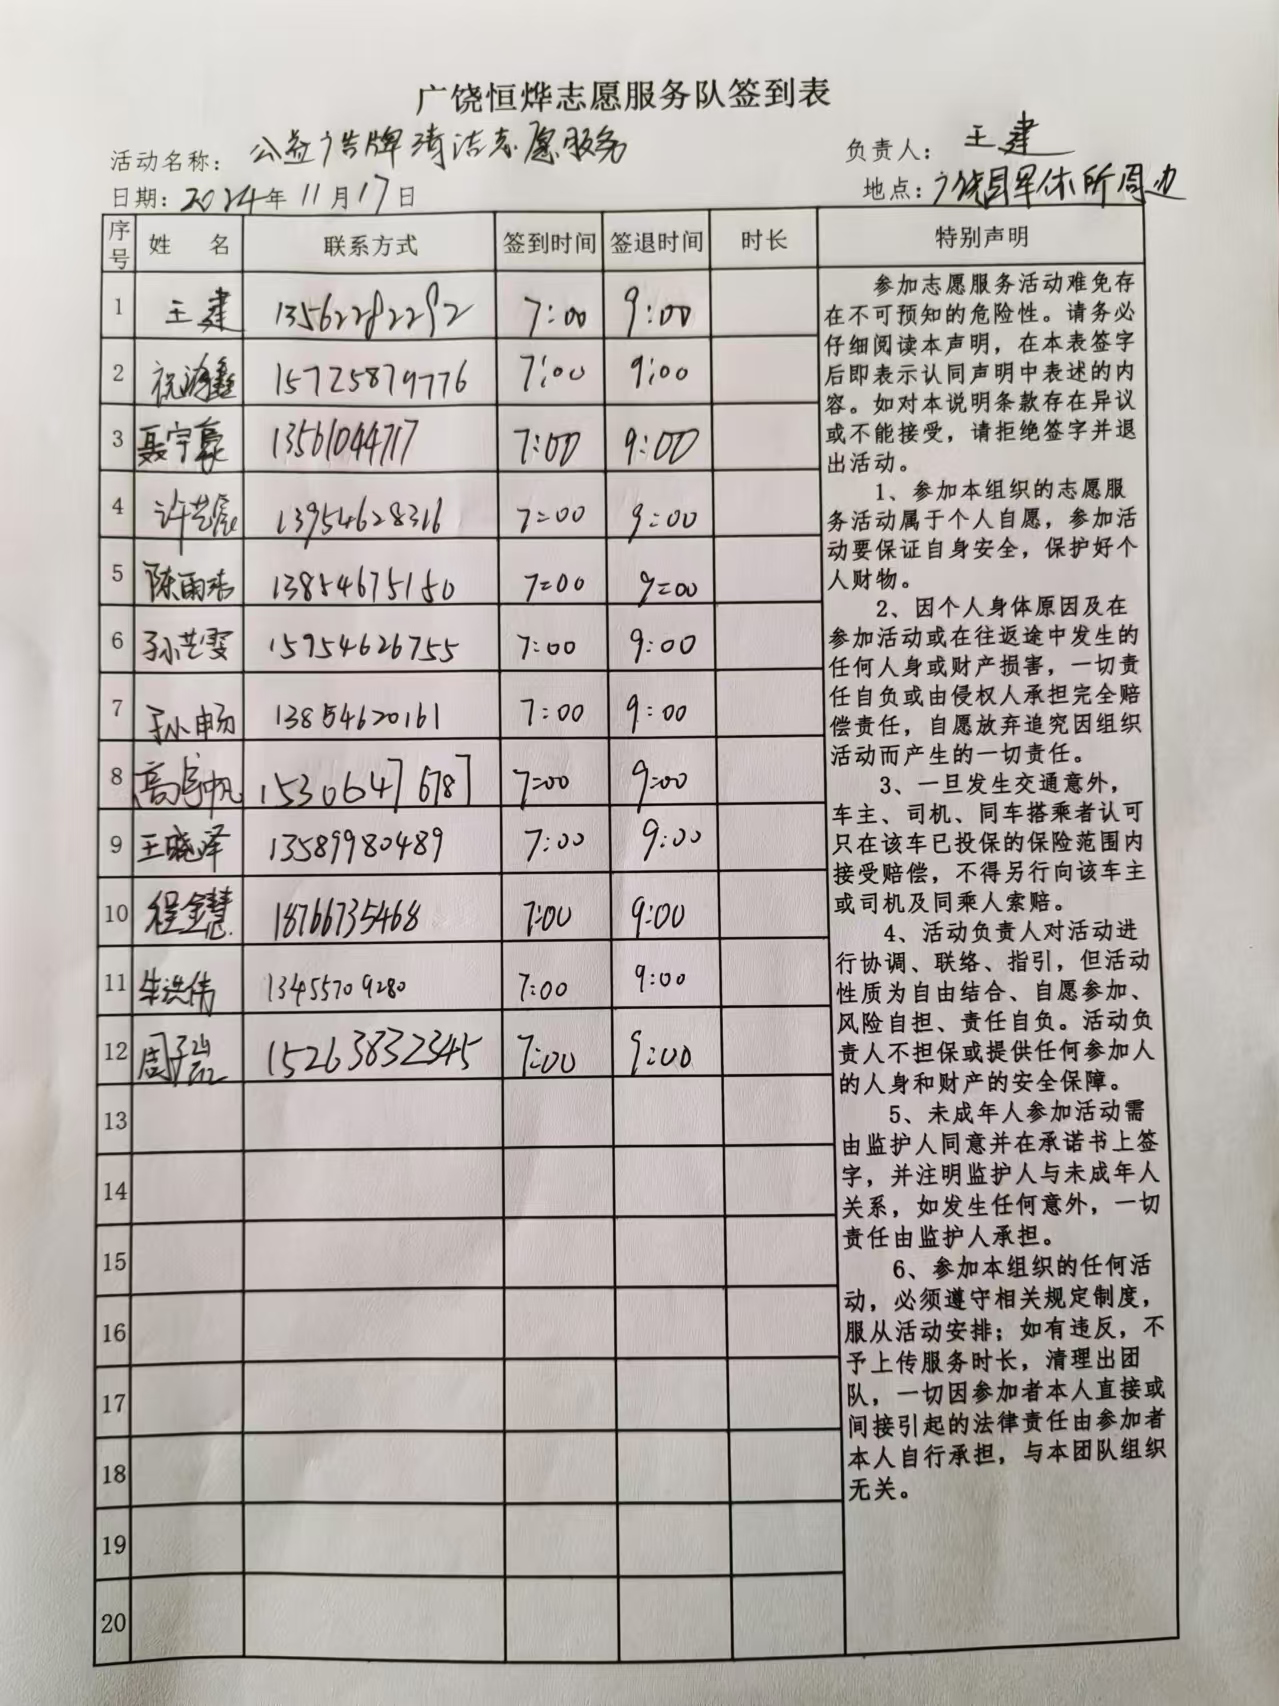 广饶恒烨志愿服务队签到表
活动名称：公益广告牌清洁志愿服务 负责人：王建
日期：2024年11月17日 地点：广饶县军休所周边
序号 姓 名 联系方式 签到时间 签退时间 时长 特别声明
1 王建 13562282292 7:00 9:00
2 祝鸿鑫 15725879776 7:00 9:00
3 聂宇豪 13561044717 7:00 9:00
4 许艺宸 13954628316 7:00 9:00
5 陈雨浩 13854675150 7:00 9:00
6 孙艺雯 15954626755 7:00 9:00
7 孙畅 13854620161 7:00 9:00
8 高宇帆 15306476787 7:00 9:00
9 王晓泽 13589980489 7:00 9:00
10 程金慧 18766735468 7:00 9:00
11 朱洪伟 13455709280 7:00 9:00
12 周子 15263832345 7:00 9:00
13
14
15
16
17
18
19
20
参加志愿服务活动难免存
在不可预知的危险性。请务必
仔细阅读本声明，在本表签字
后即表示认同声明中表述的内
容。如对本说明条款存在异议
或不能接受，请拒绝签字并退
出活动。
1、参加本组织的志愿服
务活动属于个人自愿，参加活
动要保证自身安全，保护好个
人财物。
2、因个人身体原因及在
参加活动或在往返途中发生的
任何人身或财产损害，一切责
任自负或由侵权人承担完全赔
偿责任，自愿放弃追究因组织
活动而产生的一切责任。
3、一旦发生交通意外，
车主、司机、同车搭乘者认可
只在该车已投保的保险范围内
接受赔偿，不得另行向该车主
或司机及同乘人索赔。
4、活动负责人对活动进
行协调、联络、指引，但活动
性质为自由结合、自愿参加、
风险自担、责任自负。活动负
责人不担保或提供任何参加人
的人身和财产的安全保障。
5、未成年人参加活动需
由监护人同意并在承诺书上签
字，并注明监护人与未成年人
关系，如发生任何意外，一切
责任由监护人承担。
6、参加本组织的任何活
动，必须遵守相关规定制度，
服从活动安排；如有违反，不
予上传服务时长，清理出团
队，一切因参加者本人直接或
间接引起的法律责任由参加者
本人自行承担，与本团队组织
无关。